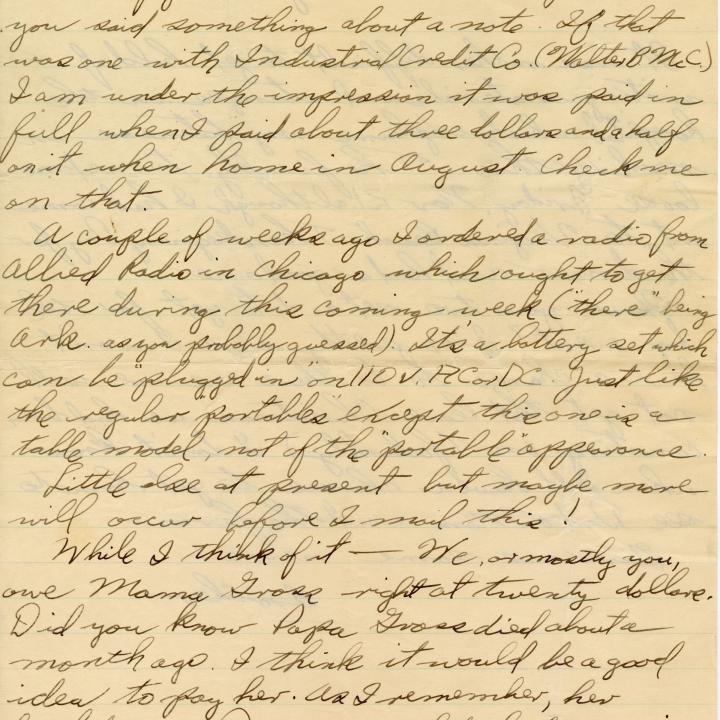 you said something about a note. If that
was one with Industrial Credit Co. (Walter B McC.)
I am under the impression it was paid in
full when I paid about three dollars and a half
on it when home in August. Check me
on that.
A couple of weeks ago I ordered a radio from
Allied Radio in Chicago which ought to get
there during this coming week ("there" being
Ark. as you probably guessed). It's a battery set which
can be "plugged in" on 110 V. AC or DC. Just like
the regular "portables" except this one is a
table model, not of the "portable" appearance.
Little else at present but maybe more
will occur before I mail this!
While I think of it — We, or mostly you,
owe Mama Gross right at twenty dollars.
Did you know Papa Gross died about a
month ago. I think it would be a good
idea to pay her. As I remember, her